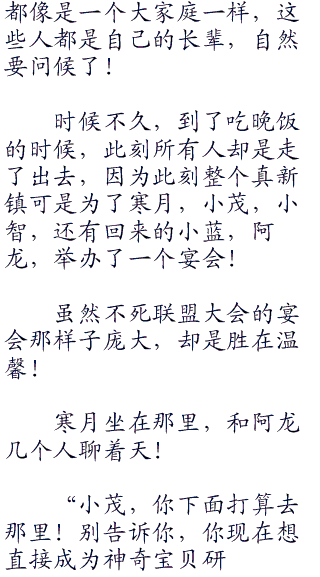 都像是一个大家庭一样，这
些人都是自己的长辈，自然
要问候了！
时候不久，到了吃晚饭
的时候，此刻所有人却是走
了出去，因为此刻整个真新
镇可是为了寒月，小茂，小
智，还有回来的小蓝，阿
龙，举办了一个宴会！
虽然不死联盟大会的宴
会那样子庞大，却是胜在温
馨！
寒月坐在那里，和阿龙
几个人聊着天！
“小茂，你下面打算去
那里！别告诉你，你现在想
直接成为神奇宝贝研